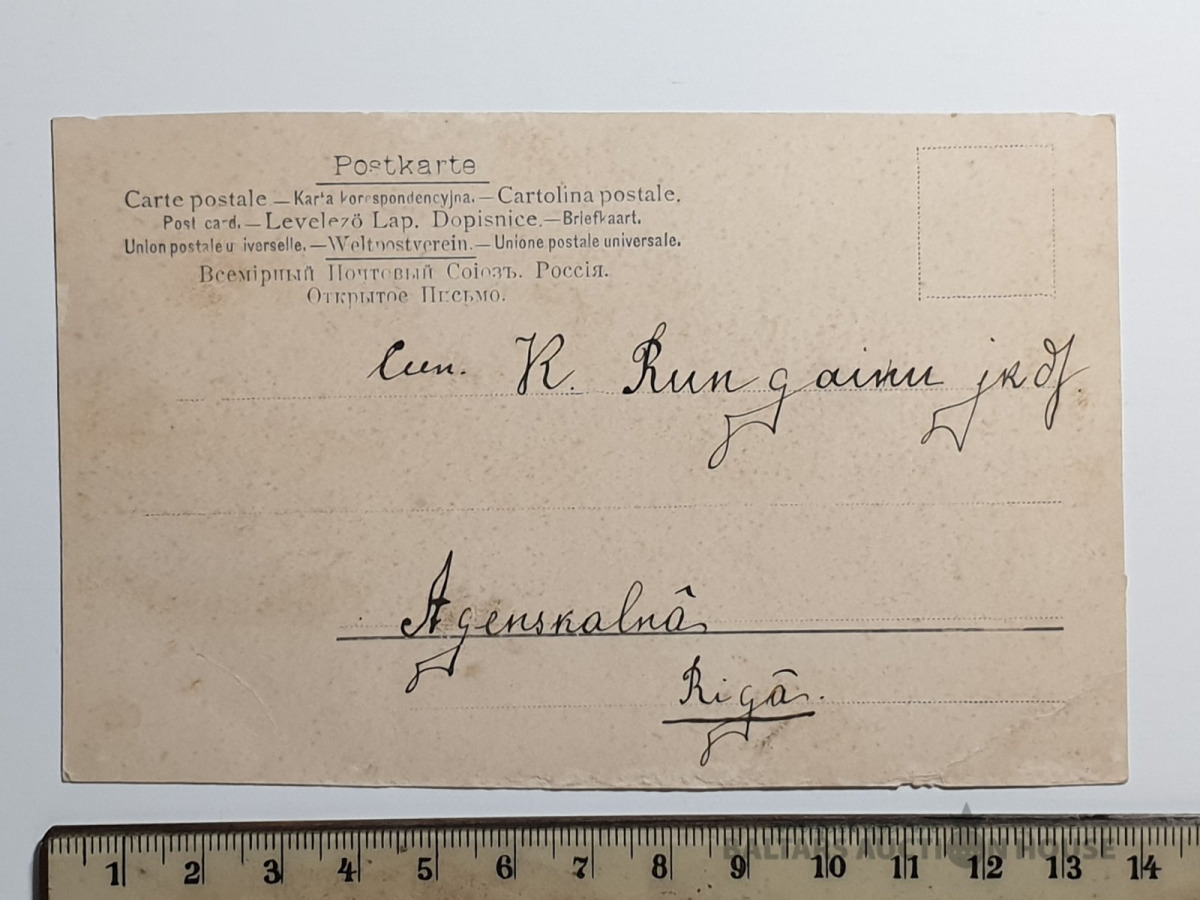 Postkarte
Carte postale – Karta korespondencyjna. – Cartolina postale.
Post card. – Levelező Lap. Dopisnice. – Briefkaart.
Union postale universelle. – Weltpostverein. – Unione postale universale.
Всемірный Почтовый Союзъ. Россія.
Открытое Письмо.
Cien. K. Rungainu jkdf.
Agenskalnâ
Rigâ.
1 2 3 4 5 6 7 8 9 10 11 12 13 14
BALTARS AUCTION HOUSE